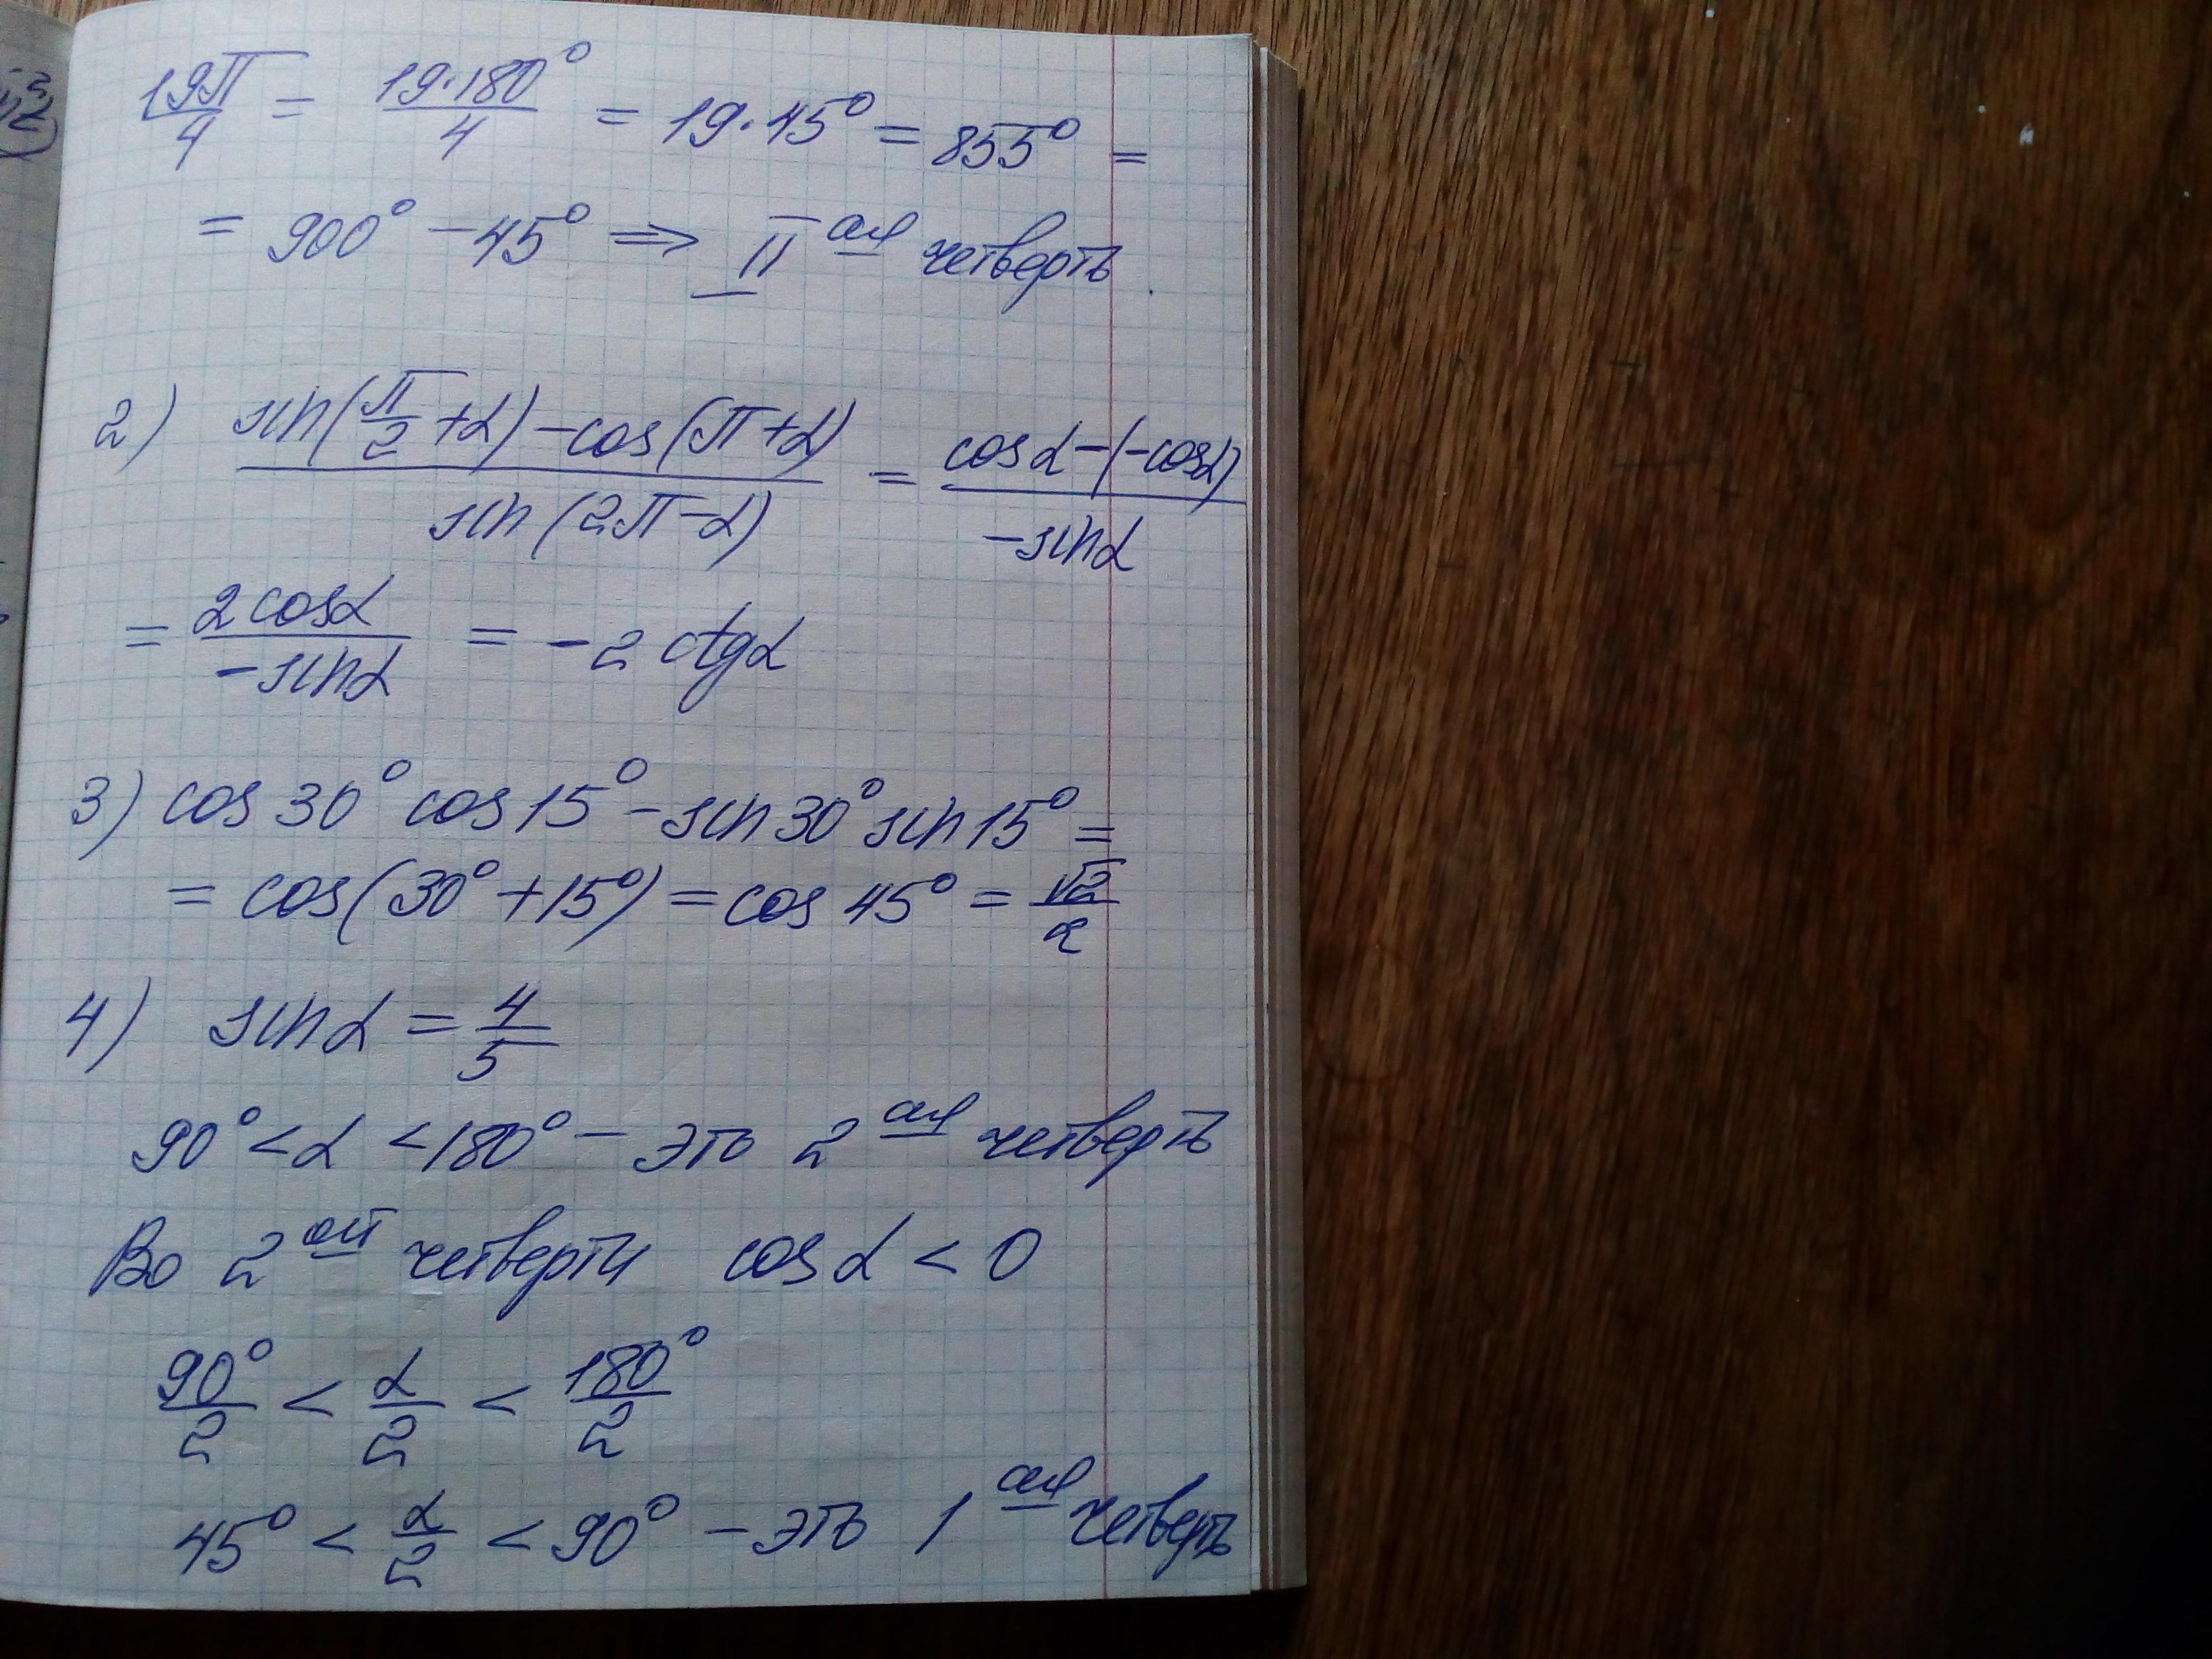 19π/4 = 19·180°/4 = 19·45° = 855° =
= 900° – 45° ⇒ II ая четверть.
2) sin(π/2 + α) – cos(π + α) / sin(2π – α) = cosα – (–cosα) / –sinα
= 2cosα / –sinα = –2 ctgα
3) cos 30° cos 15° – sin 30° sin 15° =
= cos(30° + 15°) = cos 45° = √2/2
4) sinα = 4/5
90° < α < 180° – это 2 ая четверть
Во 2 ой четверти cosα < 0
90°/2 < α/2 < 180°/2
45° < α/2 < 90° – это 1 ая четверть